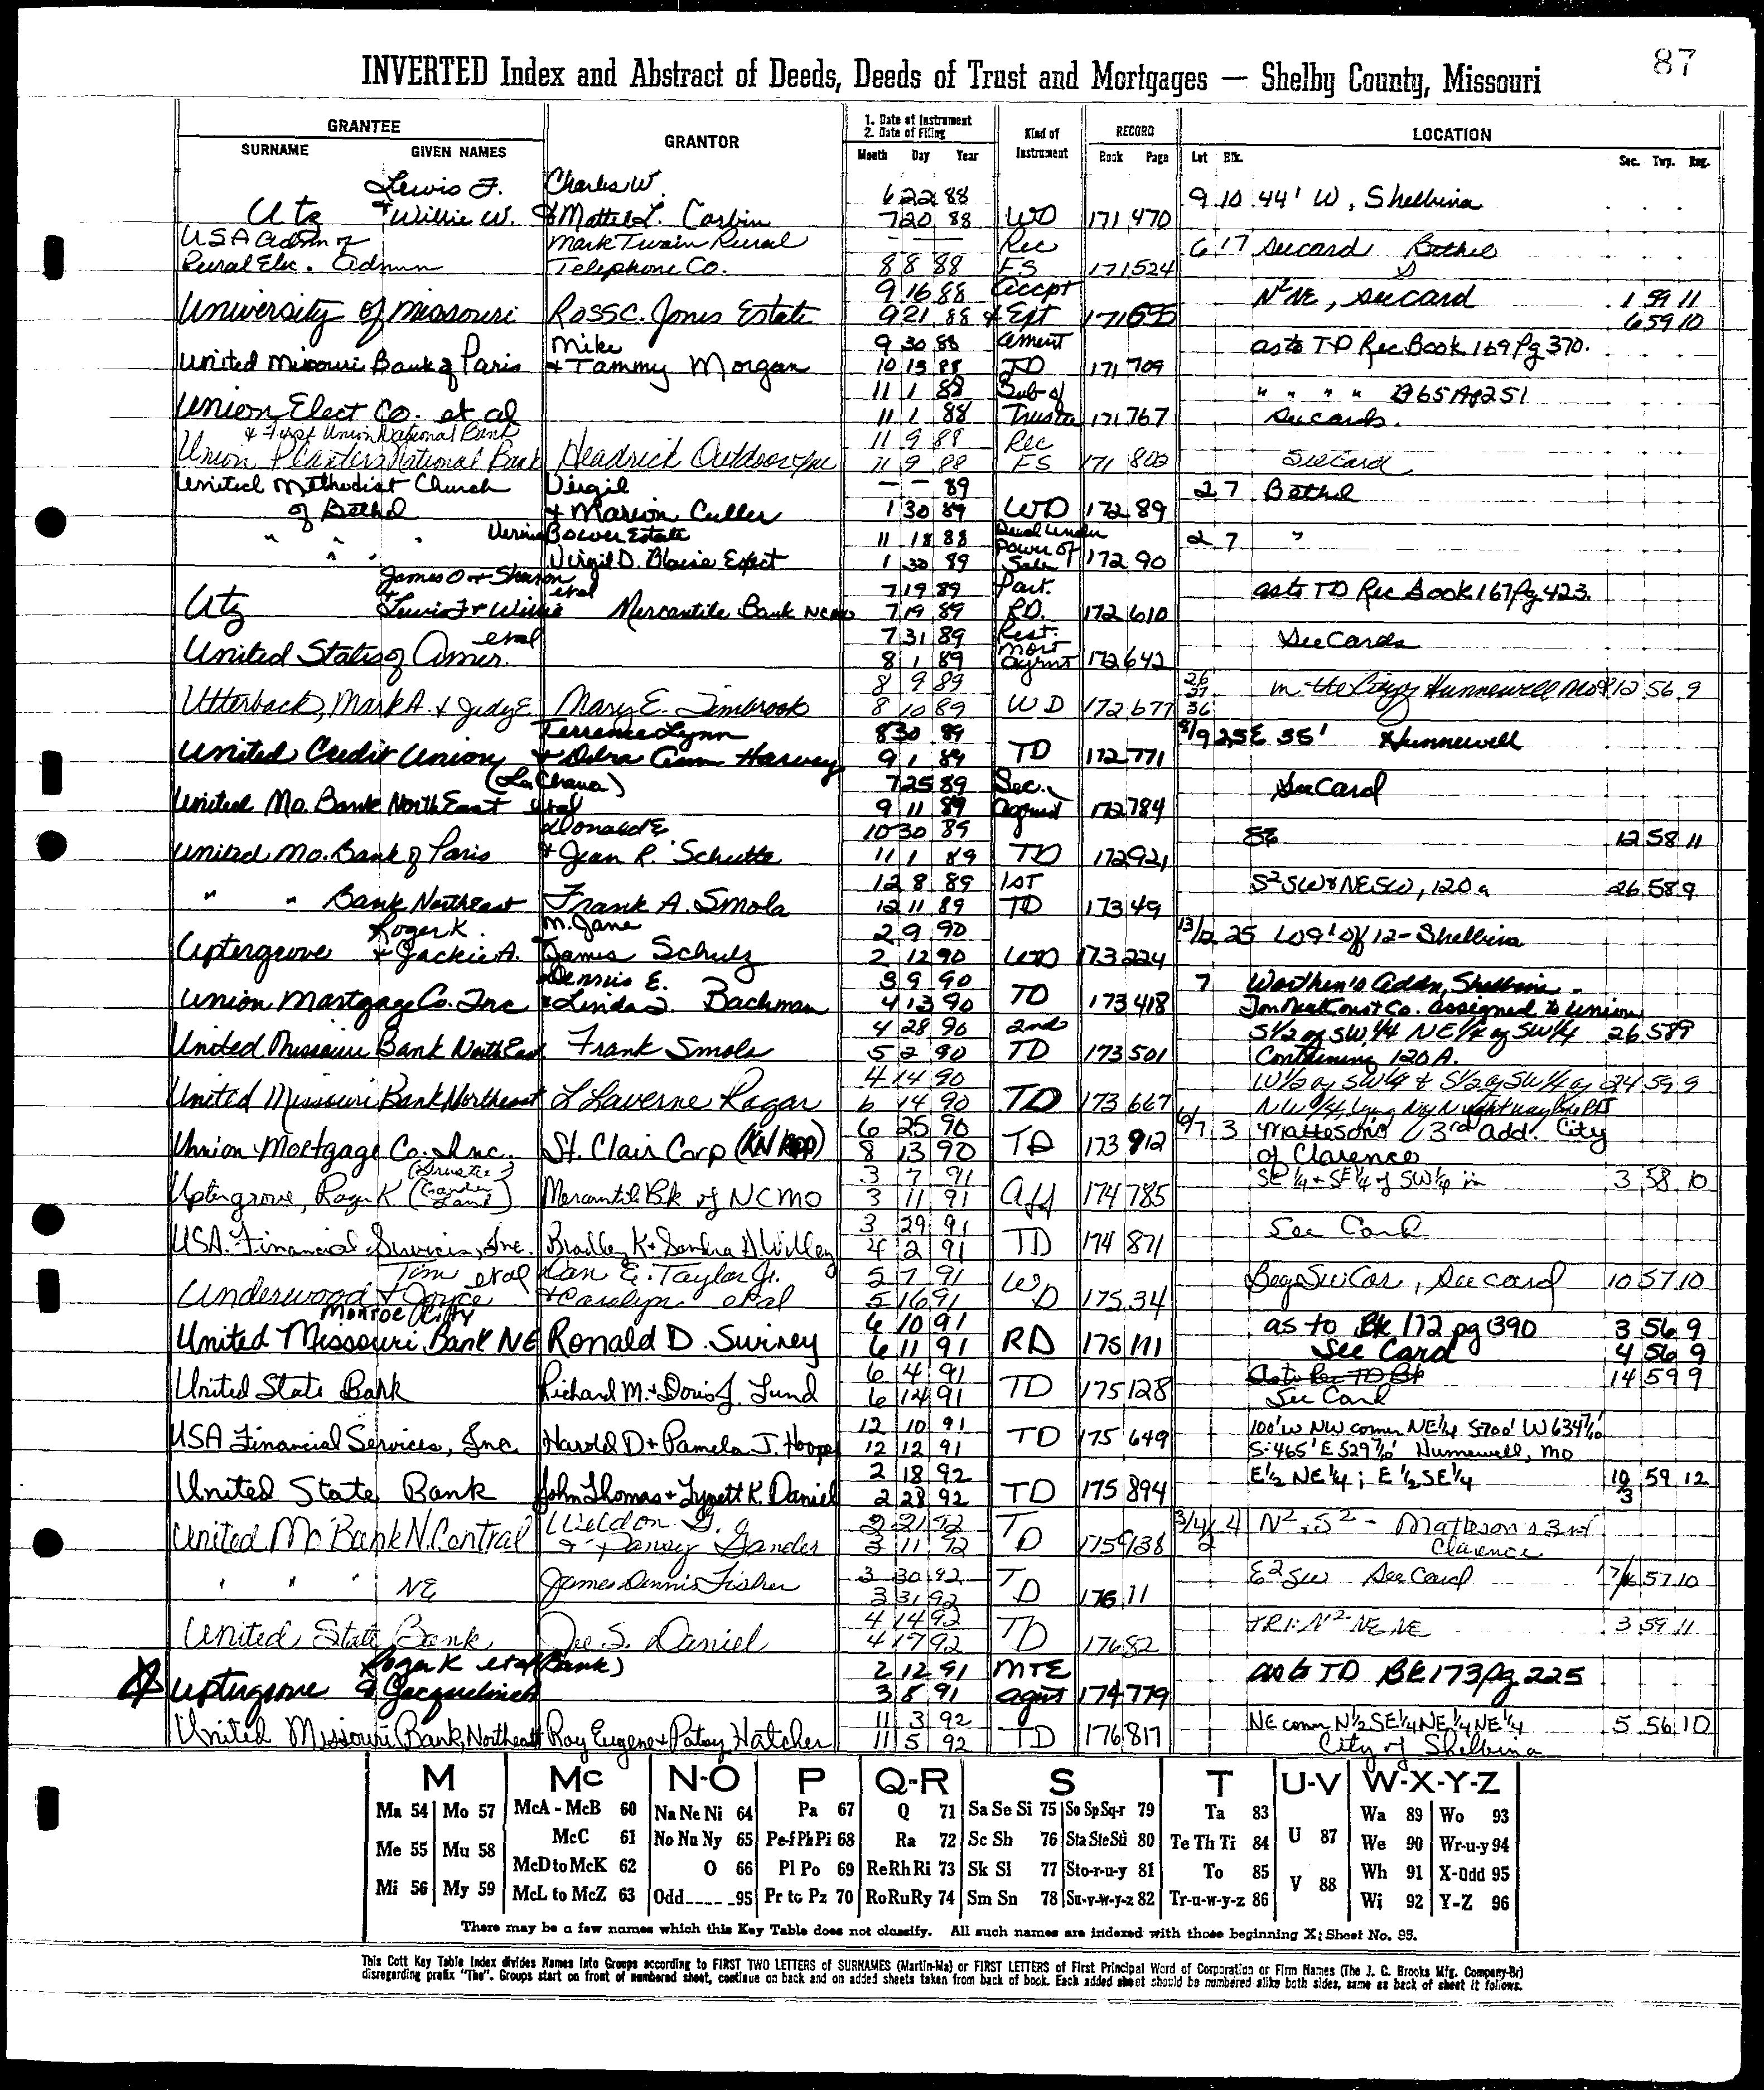 87
INVERTED Index and Abstract of Deeds, Deeds of Trust and Mortgages — Shelby County, Missouri
GRANTEE GRANTOR 1. Date of Instrument 2. Date of Filing Kind of Instrument RECORD LOCATION
SURNAME GIVEN NAMES Month Day Year Book Page Lot Blk. Sec. Twp. Rng.
Lewis F. Charles W. 6 22 88 9 10 44' W, Shelbina
Utz & Willie W. & Mattie L. Corbin 7 20 88 WD 171 470
USA Admn of Mark Twain Rural — — — Rec 6 17 See card Bethel
Rural Elec. Admn Telephone Co. 8 8 88 FS 171 524
9 16 88 Accpt N2NE, See Card 1 59 11
University of Missouri Ross C. Jones Estate 9 21 88 & Ept 171 6 59 10
Mike 9 30 88 Ament as to TD Rec Book 169 Pg 370.
United Missouri Bank of Paris & Tammy Morgan 10 13 88 TD 171 709
11 1 88 Sub of " " " " B165 Pg 251
Union Elect Co. et al 11 1 88 Trustee 171 767 See cards.
& First Union National Bank 11 9 88 Rec
Union Planters National Bank Headrick Outdoor Inc 11 9 88 FS 171 802 See Card
United Methodist Church Virgil — — 89 2 7 Bethel
of Bethel & Marion Culler 1 30 89 WD 172 89
" " " Vernie Bower Estate 11 18 88 Deed under 2 7 "
" " " Virgil D. Blaise Expct 1 30 89 Power of Sale 172 90
James O & Sharon et al 7 19 89 Part. as to TD Rec Book 167 Pg 423.
Utz & Lewis F & Willie Mercantile Bank NCMO 7 19 89 RD. 172 610
et al 7 31 89 Rest. See Cards
United States of Amer. 8 1 89 Mort Agrmt 172 642
8 9 89 26 37 in the City Hunnewell Mo 12 56 9
Utterback, Mark A. & Judy E Mary E. Timbrook 8 10 89 WD 172 677 36
Terrence Lynn 8 30 89 8/9 25 E 35' Hunnewell
United Credit Union & Debra Ann Harvey 9 1 89 TD 172 771
(La Chana) 7 25 89 Sec. See Card
United Mo. Bank NorthEast et al 9 11 89 Agrmt 172 784
Donald E 10 30 89 SE 12 58 11
United Mo. Bank of Paris & Jean R. Schutte 11 1 89 TD 172 921
12 8 89 1st S2SW & NESW, 120 a 26 58 9
" " Bank Northeast Frank A. Smola 12 11 89 TD 173 49
Roger K. M. Jane 2 9 90 13/12 25 W 9' of 12 - Shelbina
Uptergrove & Jackie A. James Schulz 2 12 90 WD 173 224
Dennis E. 3 9 90 7 Worthen's Addn, Shelbina -
Union Mortgage Co. Inc & Linda J. Bachman 4 13 90 TD 173 418 Const Co. assigned to Union
4 28 90 2nd S1/2 of SW 1/4 NE 1/4 of SW 1/4 26 58 9
United Missouri Bank NorthEast Frank Smola 5 2 90 TD 173 501 Containing 120 A.
4 14 90 W1/2 of SW 1/4 & S1/2 of SW 1/4 of 24 59 9
United Missouri Bank Northeast L Laverne Ragar 6 14 90 TD 173 667 NW 1/4 lying
6 25 90 6/7 3 Mattesons 3rd Add. City
Union Mortgage Co. Inc. St. Clair Corp 8 13 90 TD 173 912 of Clarence
(Trustee) 3 7 91 SE 1/4 & SE 1/4 of SW 1/4 in 3 58 10
Uptergrove, Roger K Mercantile Bk of NCMO 3 11 91 Aff 174 785
3 29 91 See Card
USA Financial Services, Inc. Bradley K & Sandra D. Willey 4 2 91 TD 174 871
Tim et al Dan E. Taylor Jr. 5 7 91 Beg Sw Cor, See card 10 57 10
Underwood & Joyce & Carolyn et al 5 16 91 WD 175 34
Monroe City 6 10 91 as to Bk 172 pg 390 3 56 9
United Missouri Bank NE Ronald D. Swiney 6 11 91 RD 175 111 See Card 4 56 9
6 4 91 As to Rec TD Bk 14 59 9
United State Bank Richard M. & Doris J. Lund 6 14 91 TD 175 128 See Card
12 10 91 100' W NW corner NE 1/4 S 700' W 634 7/10'
USA Financial Services, Inc Harold D & Pamela J. Hooper 12 12 91 TD 175 649 S. 465' E 529 7/10' Hunnewell, Mo
2 18 92 E 1/2 NE 1/4; E 1/2 SE 1/4 10/3 59 12
United State Bank John Thomas & Lynett K. Daniel 2 28 92 TD 175 894
Weldon G. 2 21 92 3/4/1/2 4 N2, S2 - Matteson's 3rd
United Mo Bank N. Central & Pansy Gander 3 11 92 TD 175 938 Clarence
3 30 92 E2SW See Card 57 10
" " " NE James Dennis Fisher 3 31 92 TD 176 11
4 14 92 TR1: N2 NE NE 3 59 11
United State Bank Joe S. Daniel 4 17 92 TD 176 82
Roger K et al (Bank) 2 12 91 MTE as to TD Bk 173 pg. 225
Uptergrove & Jacqueline A 3 8 91 Agmt 174 779
11 3 92 NE corner N 1/2 SE 1/4 NE 1/4 NE 1/4 5 56 10
United Missouri Bank, Northeast Roy Eugene & Patsy Hatcher 11 5 92 TD 176 817 City of Shelbina
M Mc N-O P Q-R S T U-V W-X-Y-Z
Ma 54 Mo 57 McA - McB 60 Na Ne Ni 64 Pa 67 Q 71 Sa Se Si 75 So Sp Sq-r 79 Ta 83 U 87 Wa 89 Wo 93
Me 55 Mu 58 McC 61 No Nu Ny 65 Pe-f Ph Pi 68 Ra 72 Sc Sh 76 Sta Ste Sti 80 Te Th Ti 84 We 90 Wr-u-y 94
McD to McK 62 O 66 Pl Po 69 Re Rh Ri 73 Sk Sl 77 Sto-r-u-y 81 To 85 V 88 Wh 91 X-Odd 95
Mi 56 My 59 McL to McZ 63 Odd_____95 Pr to Pz 70 Ro Ru Ry 74 Sm Sn 78 Su-v-w-y-z 82 Tr-u-w-y-z 86 Wi 92 Y-Z 96
There may be a few names which this Key Table does not classify. All such names are indexed with those beginning X; Sheet No. 95.
This Cott Key Table Index divides Names Into Groups according to FIRST TWO LETTERS of SURNAMES (Martin-Ma) or FIRST LETTERS of First Principal Word of Corporation or Firm Names (The J. C. Brocks Mfg. Company-Br)
disregarding prefix "The". Groups start on front of numbered sheet, continue on back and on added sheets taken from back of book. Each added sheet should be numbered alike both sides, same as back of sheet it follows.